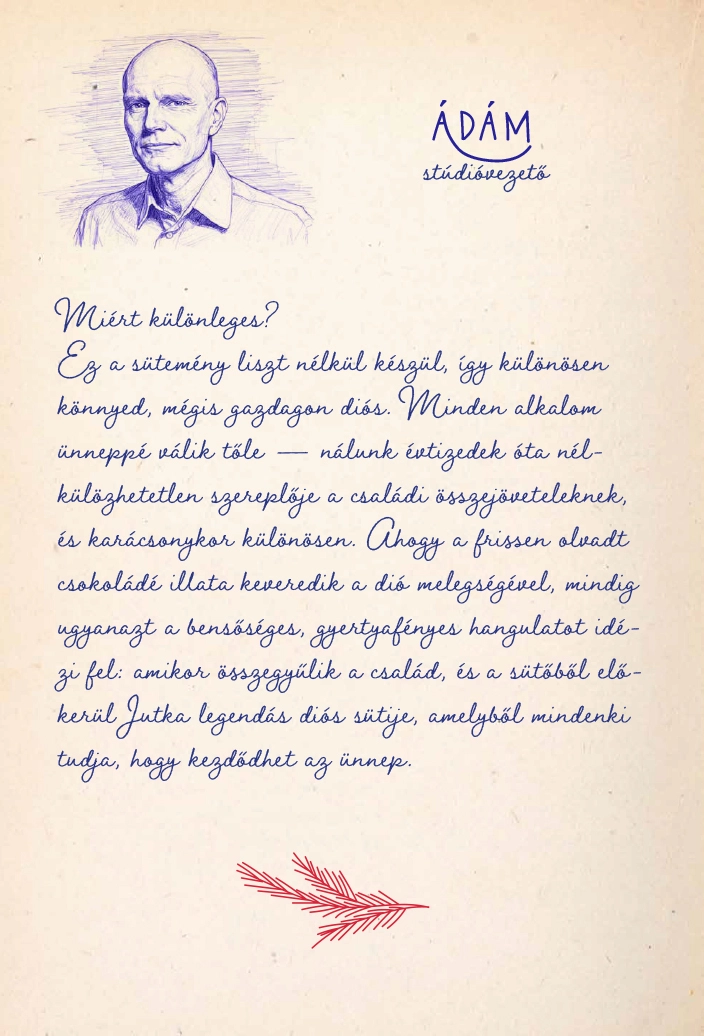 ÁDÁM
stúdióvezető
Miért különleges?
Ez a sütemény liszt nélkül készül, így különösen
könnyed, mégis gazdagon diós. Minden alkalom
ünneppé válik tőle — nálunk évtizedek óta nél-
külözhetetlen szereplője a családi összejöveteleknek,
és karácsonykor különösen. Ahogy a frissen olvadt
csokoládé illata keveredik a dió melegségével, mindig
ugyanazt a bensőséges, gyertyafényes hangulatot idé-
zi fel: amikor összegyűlik a család, és a sütőből elő-
kerül Jutka legendás diós sütije, amelyből mindenki
tudja, hogy kezdődhet az ünnep.